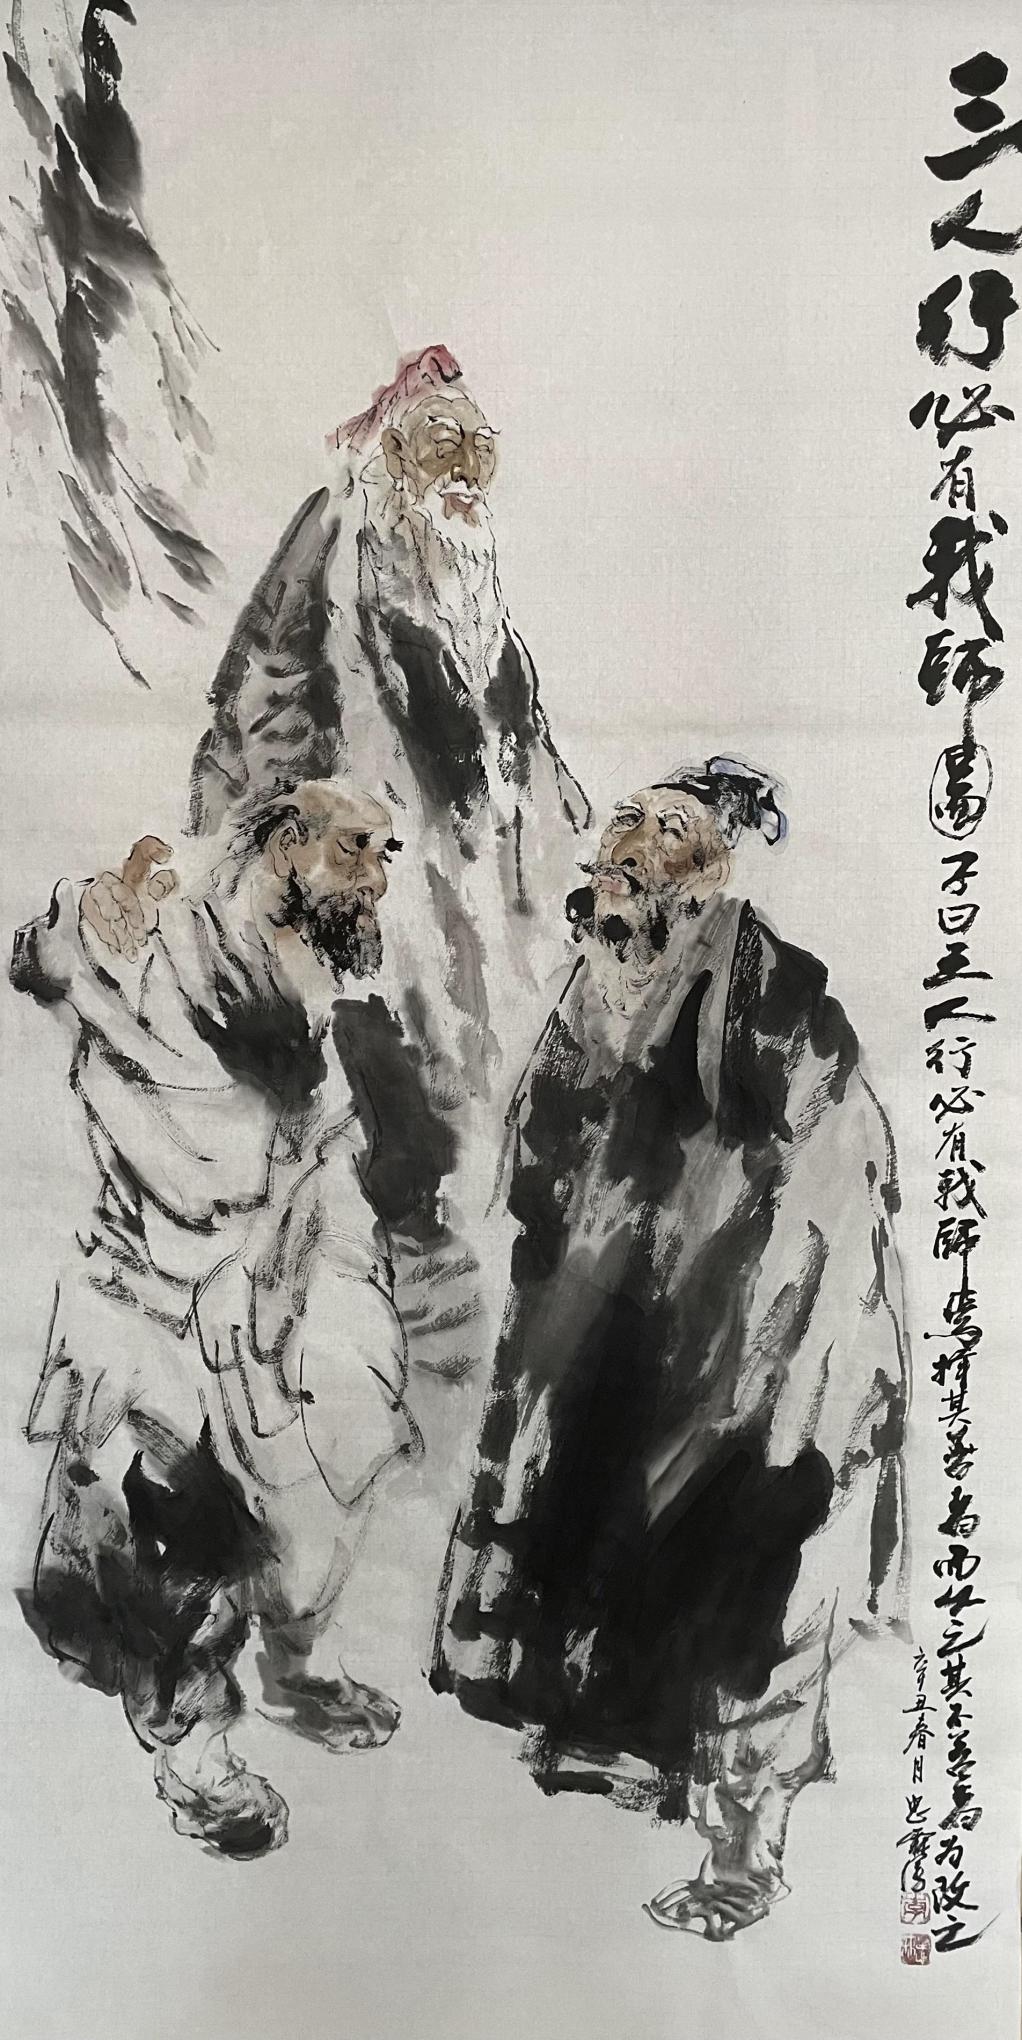 三人行必有我師啚子曰三人行必有我師焉择其善者而从之其不善者为改之
辛丑春月忠霖清